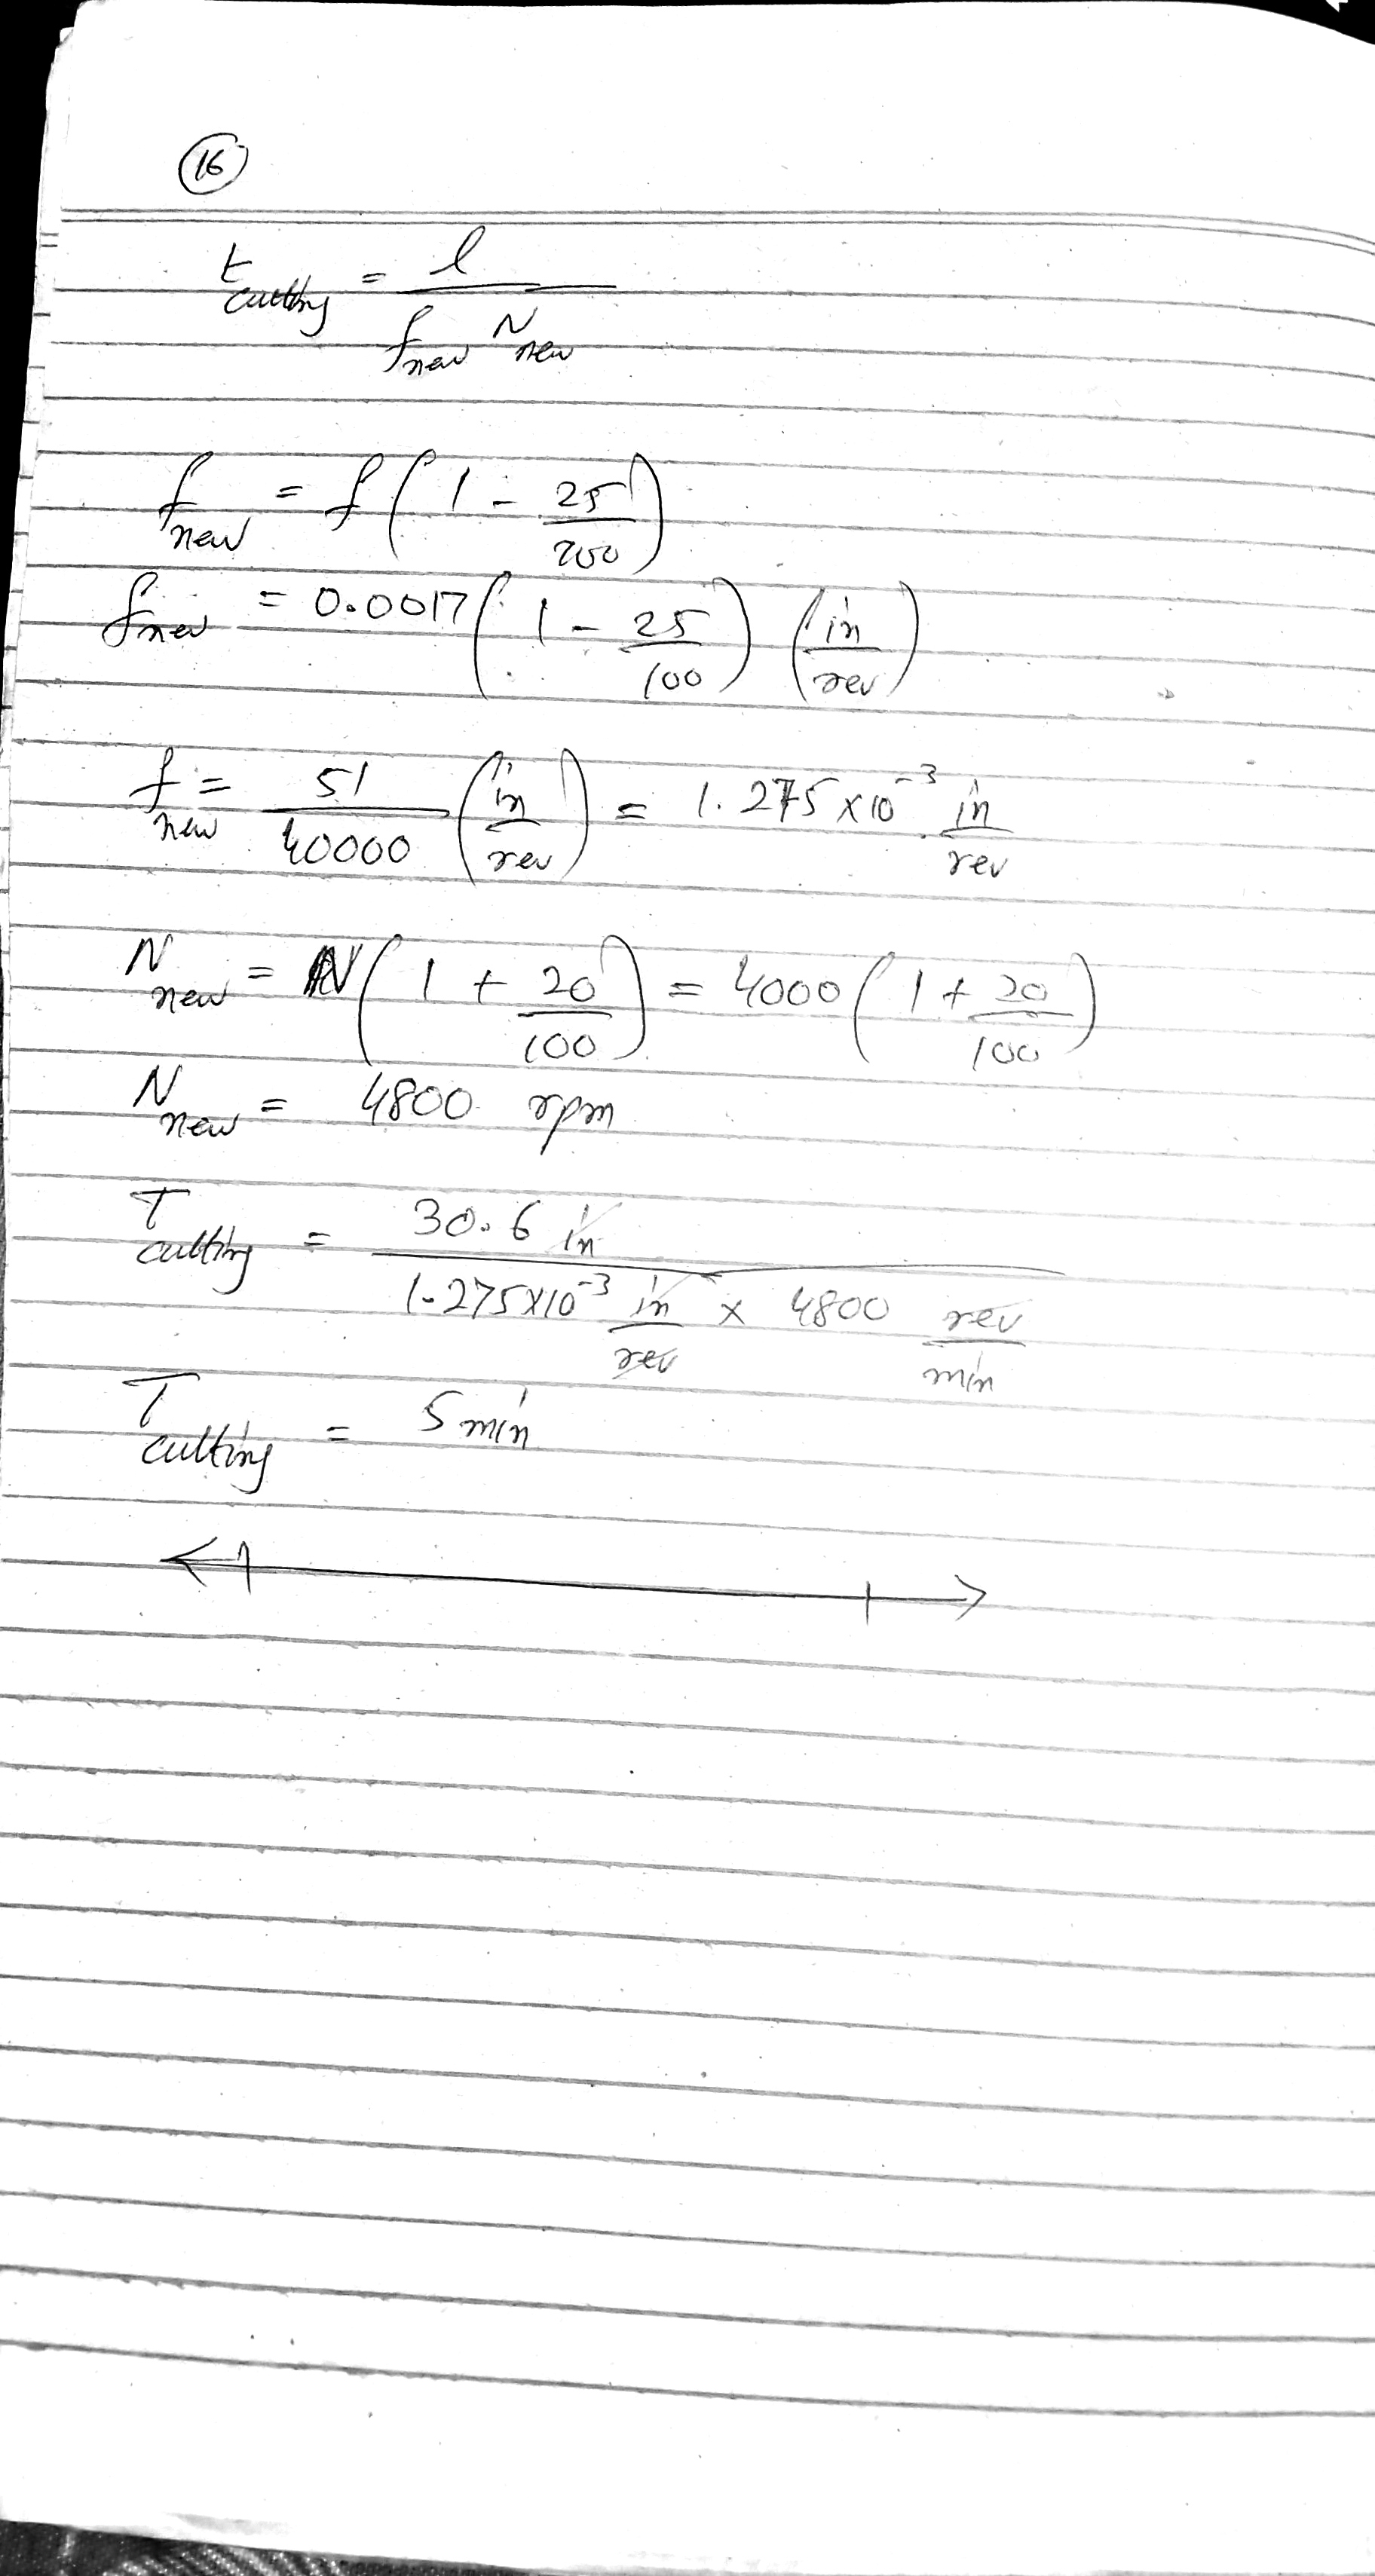 16
t cutting = l / f new N new
f new = f ( 1 - 25 / 200 )
f new = 0.0017 ( 1 - 25 / 100 ) ( in / rev )
f new = 51 / 40000 ( in / rev ) = 1.275 x 10^-3 in / rev
N new = N ( 1 + 20 / 100 ) = 4000 ( 1 + 20 / 100 )
N new = 4800 rpm
T cutting = 30.6 in / 1.275 x 10^-3 in / rev x 4800 rev / min
T cutting = 5 min